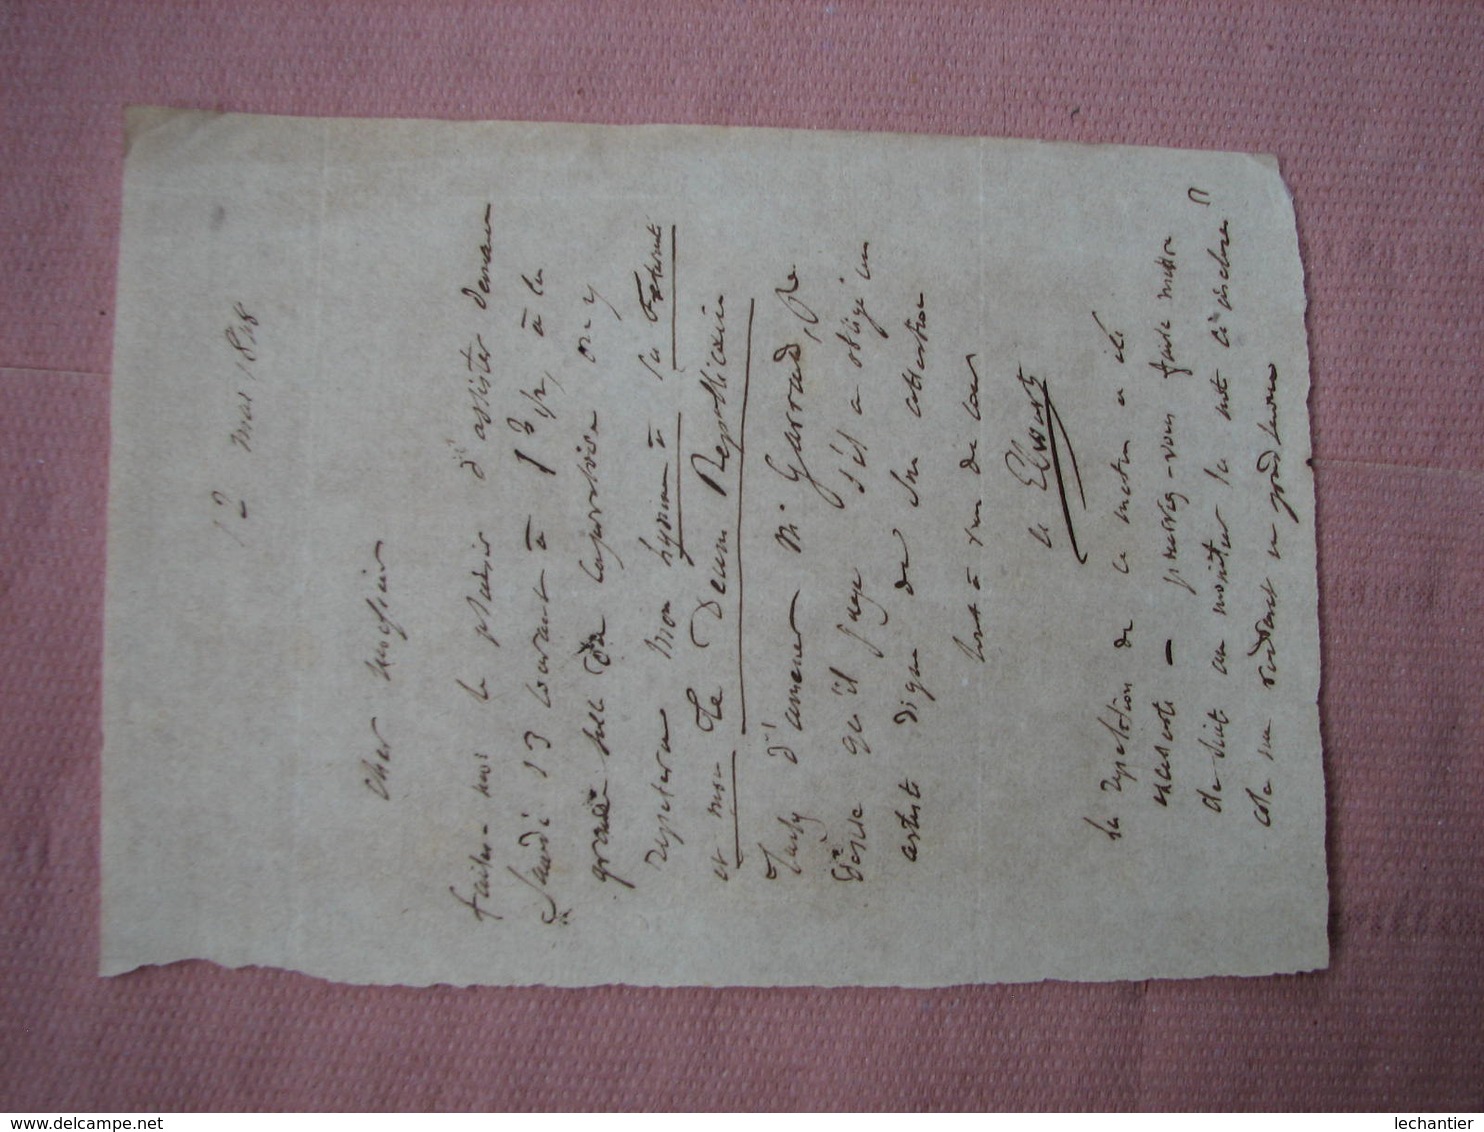 12 mai 1848
Cher monsieur
faites-moi le plaisir d'assister demain
Samedi 13 courant à 1 h 1/2, à la
grande salle du Conservatoire on y
repetera mon hymne à la Fraternité
et mon Te Deum Republicain
d'amener Mr Garraud,
qu'il juge s'il a obligé un
artiste digne de son attention
tout à vous de cœur
A. Elwart
la repetition de ce matin a été
excellente — pourrez-vous faire mettre
de suite au moniteur la note ci incluse ?
cela me rendrait un grand service
delcampe.net
lechantier